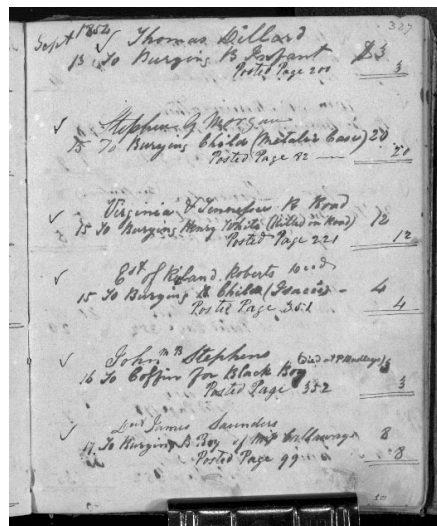 327
Sept 1854 Thomas Dillard
13 To Burying B Infant $3
Posted Page 200 3
Stephen G Morgan
15 To Burying Child (Metalic Case) 20
Posted Page 82 20
Virginia & Tennessee R Road
15 To Burying Henry White (Killed on Road) 12
Posted Page 221 12
Est of Ryland Roberts
15 To Burying B Child 4
Posted Page 351 4
John M B Stephens
16 To Coffin for Black Boy (Died at 3
Posted Page 352 3
James Saunders
17 To Burying B Boy of Callaways 8
Posted Page 99 8